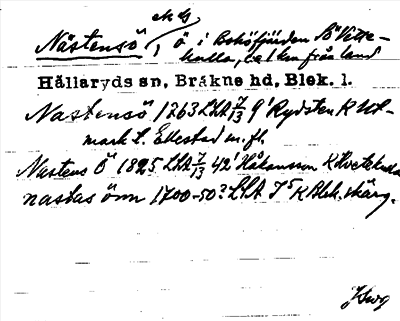 Nästensö, ö i Boköfjärden S°Vette-
kulla, c:a 1 km från land
Hällaryds sn, Bräkne hd, Blek. l.
Nastensö 1263 LSA 7/13 9' Rydsten K Ut-
mark t. Ellestad m.fl.
Nastens Ö 1825 LSA 7/13 42' Håkansson K Hvetekulla
nastas önn 1700-50? LSA J 5 K Blek. skärg.